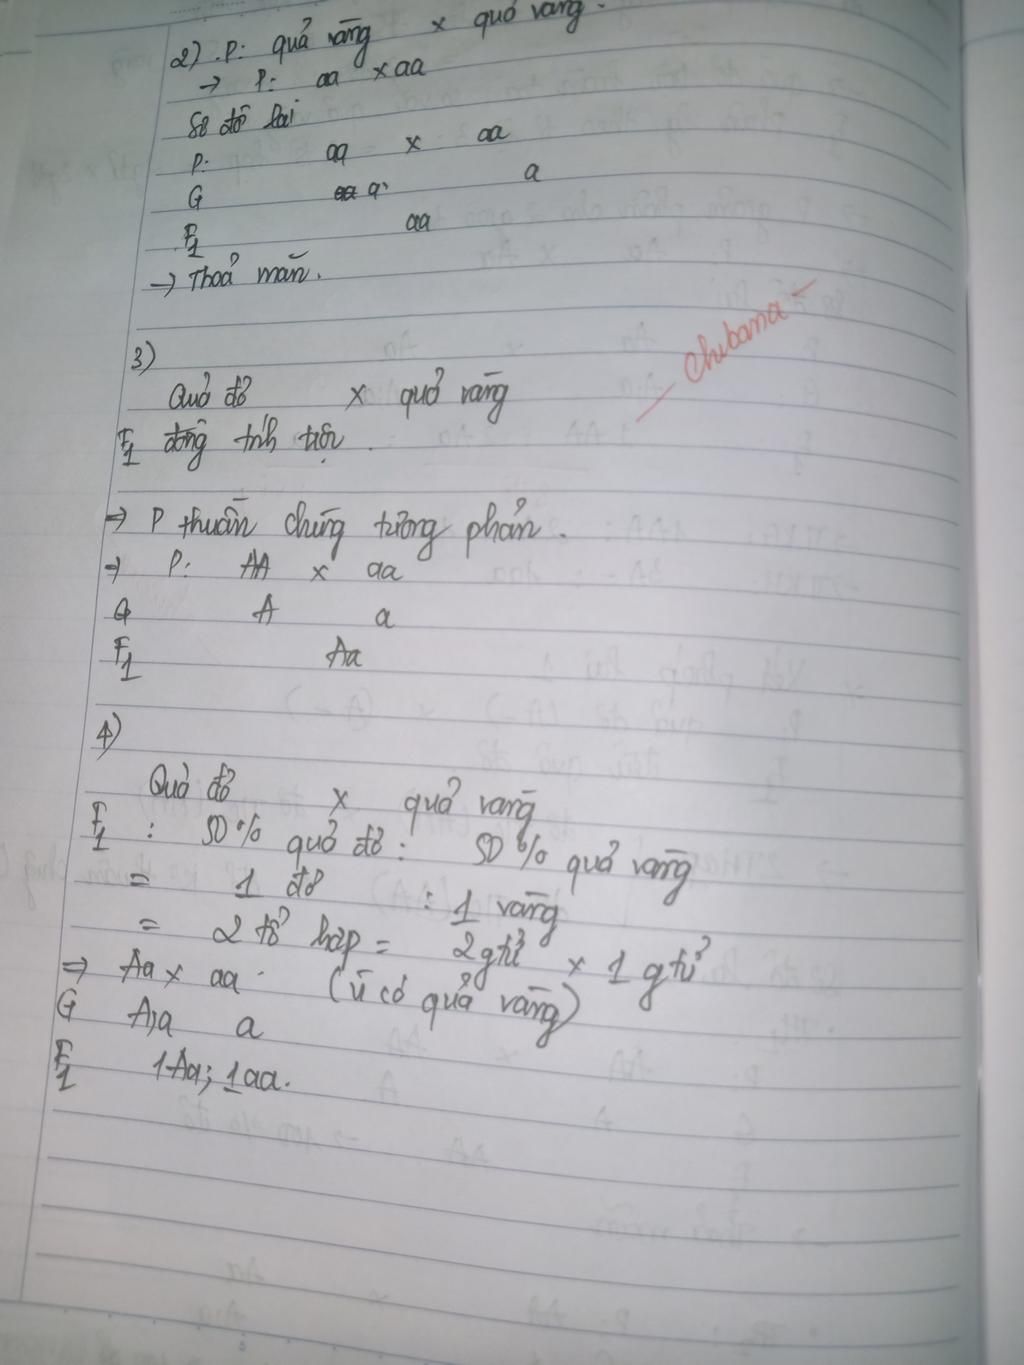 2) P: quả vàng x quả vàng.
→ P: aa x aa
Sơ đồ lai
P: aa x aa
G a a
F1 aa
→ Thoả mãn.
Chibana
3)
Quả đỏ x quả vàng
F1 đồng tính trội.
→ P thuần chủng tương phản.
→ P: AA x aa
G A a
F1 Aa
4)
Quả đỏ x quả vàng
F1 : 50% quả đỏ : 50% quả vàng
= 1 đỏ : 1 vàng
= 2 tổ hợp = 2 gtử x 1 gtử
⇒ Aa x aa. (vì có quả vàng)
G A;a a
F1 1Aa; 1aa.